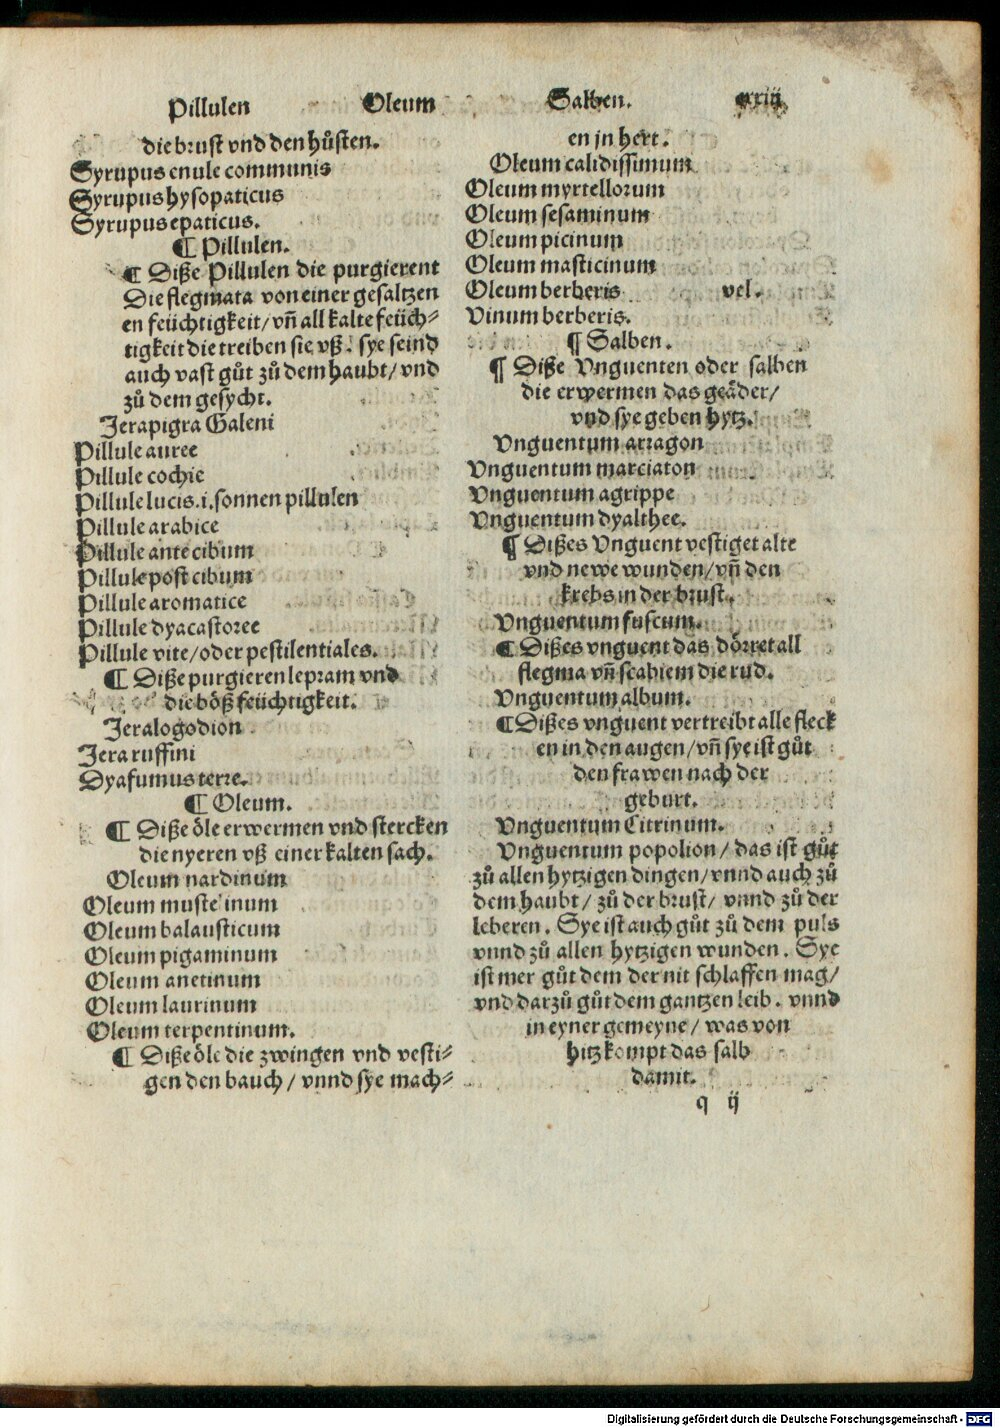 Pillulen Oleum Salben. xxiij
die brust vnd den hůsten.
Syrupus enule communis
Syrupus hysopaticus
Syrupus epaticus.
¶ Pillulen.
¶ Diße Pillulen die purgierent
Die flegmata von einer gesaltzen
en feüchtigkeit/ vn̄ all kalte feüch⸗
tigkeit die treiben sie vß. sye seind
auch vast gůt zů dem haubt/ vnd
zů dem gesycht.
Jerapigra Galeni
Pillule auree
Pillule cochie
Pillule lucis .i. sonnen pillulen
Pillule arabice
Pillule ante cibum
Pillule post cibum
Pillule aromatice
Pillule dyacastoree
Pillule vite/ oder pestilentiales.
¶ Diße purgieren lepram vnd
die böß feüchtigkeit.
Jeralogodion
Jera ruffini
Dyafumus terre.
¶ Oleum.
¶ Diße öle erwermen vnd stercken
die nyeren vß einer kalten sach.
Oleum nardinum
Oleum mustelinum
Oleum balausticum
Oleum pigaminum
Oleum anetinum
Oleum laurinum
Oleum terpentinum.
¶ Diße öle die zwingen vnd vesti⸗
gen den bauch/ vnnd sye mach⸗
en jn hert.
Oleum calidissimum
Oleum myrtellorum
Oleum sesaminum
Oleum picinum
Oleum masticinum
Oleum berberis vel.
Vinum berberis.
¶ Salben.
¶ Diße Vnguenten oder salben
die erwermen das geäder/
vnd sye geben hytz.
Vnguentum arragon
Vnguentum marciaton
Vnguentum agrippe
Vnguentum dyalthee.
¶ Dißes Vnguent vestiget alte
vnd newe wunden/ vn̄ den
krebs in der brust.
Vnguentum fuscum.
¶ Dißes vnguent das dörret all
flegma vn̄ scabiem die rud.
Vnguentum album.
¶ Dißes vnguent vertreibt alle fleck
en in den augen/ vn̄ sye ist gůt
den frawen nach der
geburt.
Vnguentum Citrinum.
Vnguentum popolion/ das ist gůt
zů allen hytzigen dingen/ vnnd auch zů
dem haubt/ zů der brust/ vnnd zů der
leberen. Sye ist auch gůt zů dem puls
vnnd zů allen hytzigen wunden. Sye
ist mer gůt dem der nit schlaffen mag/
vnd darzů gůt dem gantzen leib. vnnd
in eyner gemeyne/ was von
hitz kompt das salb
damit.
q ij
Digitalisierung gefördert durch die Deutsche Forschungsgemeinschaft - DFG